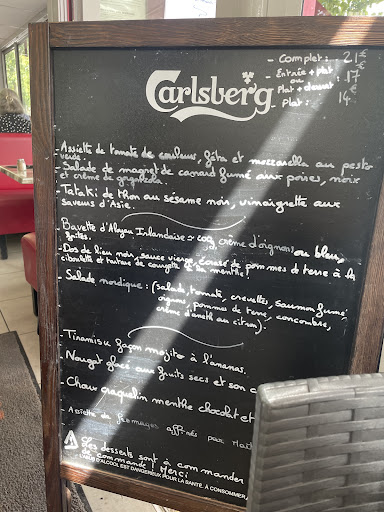 Carlsberg
- Complet : 21€
- Entrée + plat
ou 17€
Plat + dessert
- Plat : 14€
- Assiette de tomate de couleurs, fêta et mozzarella au pesto
verde.
- Salade de magret de canard fumé aux poires, noix
et crème de gorgonzola.
- Tataki de thon au sésame noir, vinaigrette aux
saveurs d'Asie.
- Bavette d'Aloyau Irlandaise ≃ 200g crème d'oignons ou bleu,
frites.
- Dos de lieu noir, sauce vierge, écrasé de pommes de terre à la
ciboulette et de courgette à la menthe.
- Salade nordique : (salade, tomate, crevettes, saumon fumé,
oignons, pommes de terre, concombre,
crème d'aneth au citron).
- Tiramisu façon mojito à l'ananas.
- Nougat glacé aux fruits secs et son
- Choux craquelin menthe chocolat et
- Assiette de fromages affinés par
Les desserts sont à commander
de commande ! Merci
L'ABUS D'ALCOOL EST DANGEREUX POUR LA SANTÉ. À CONSOMMER